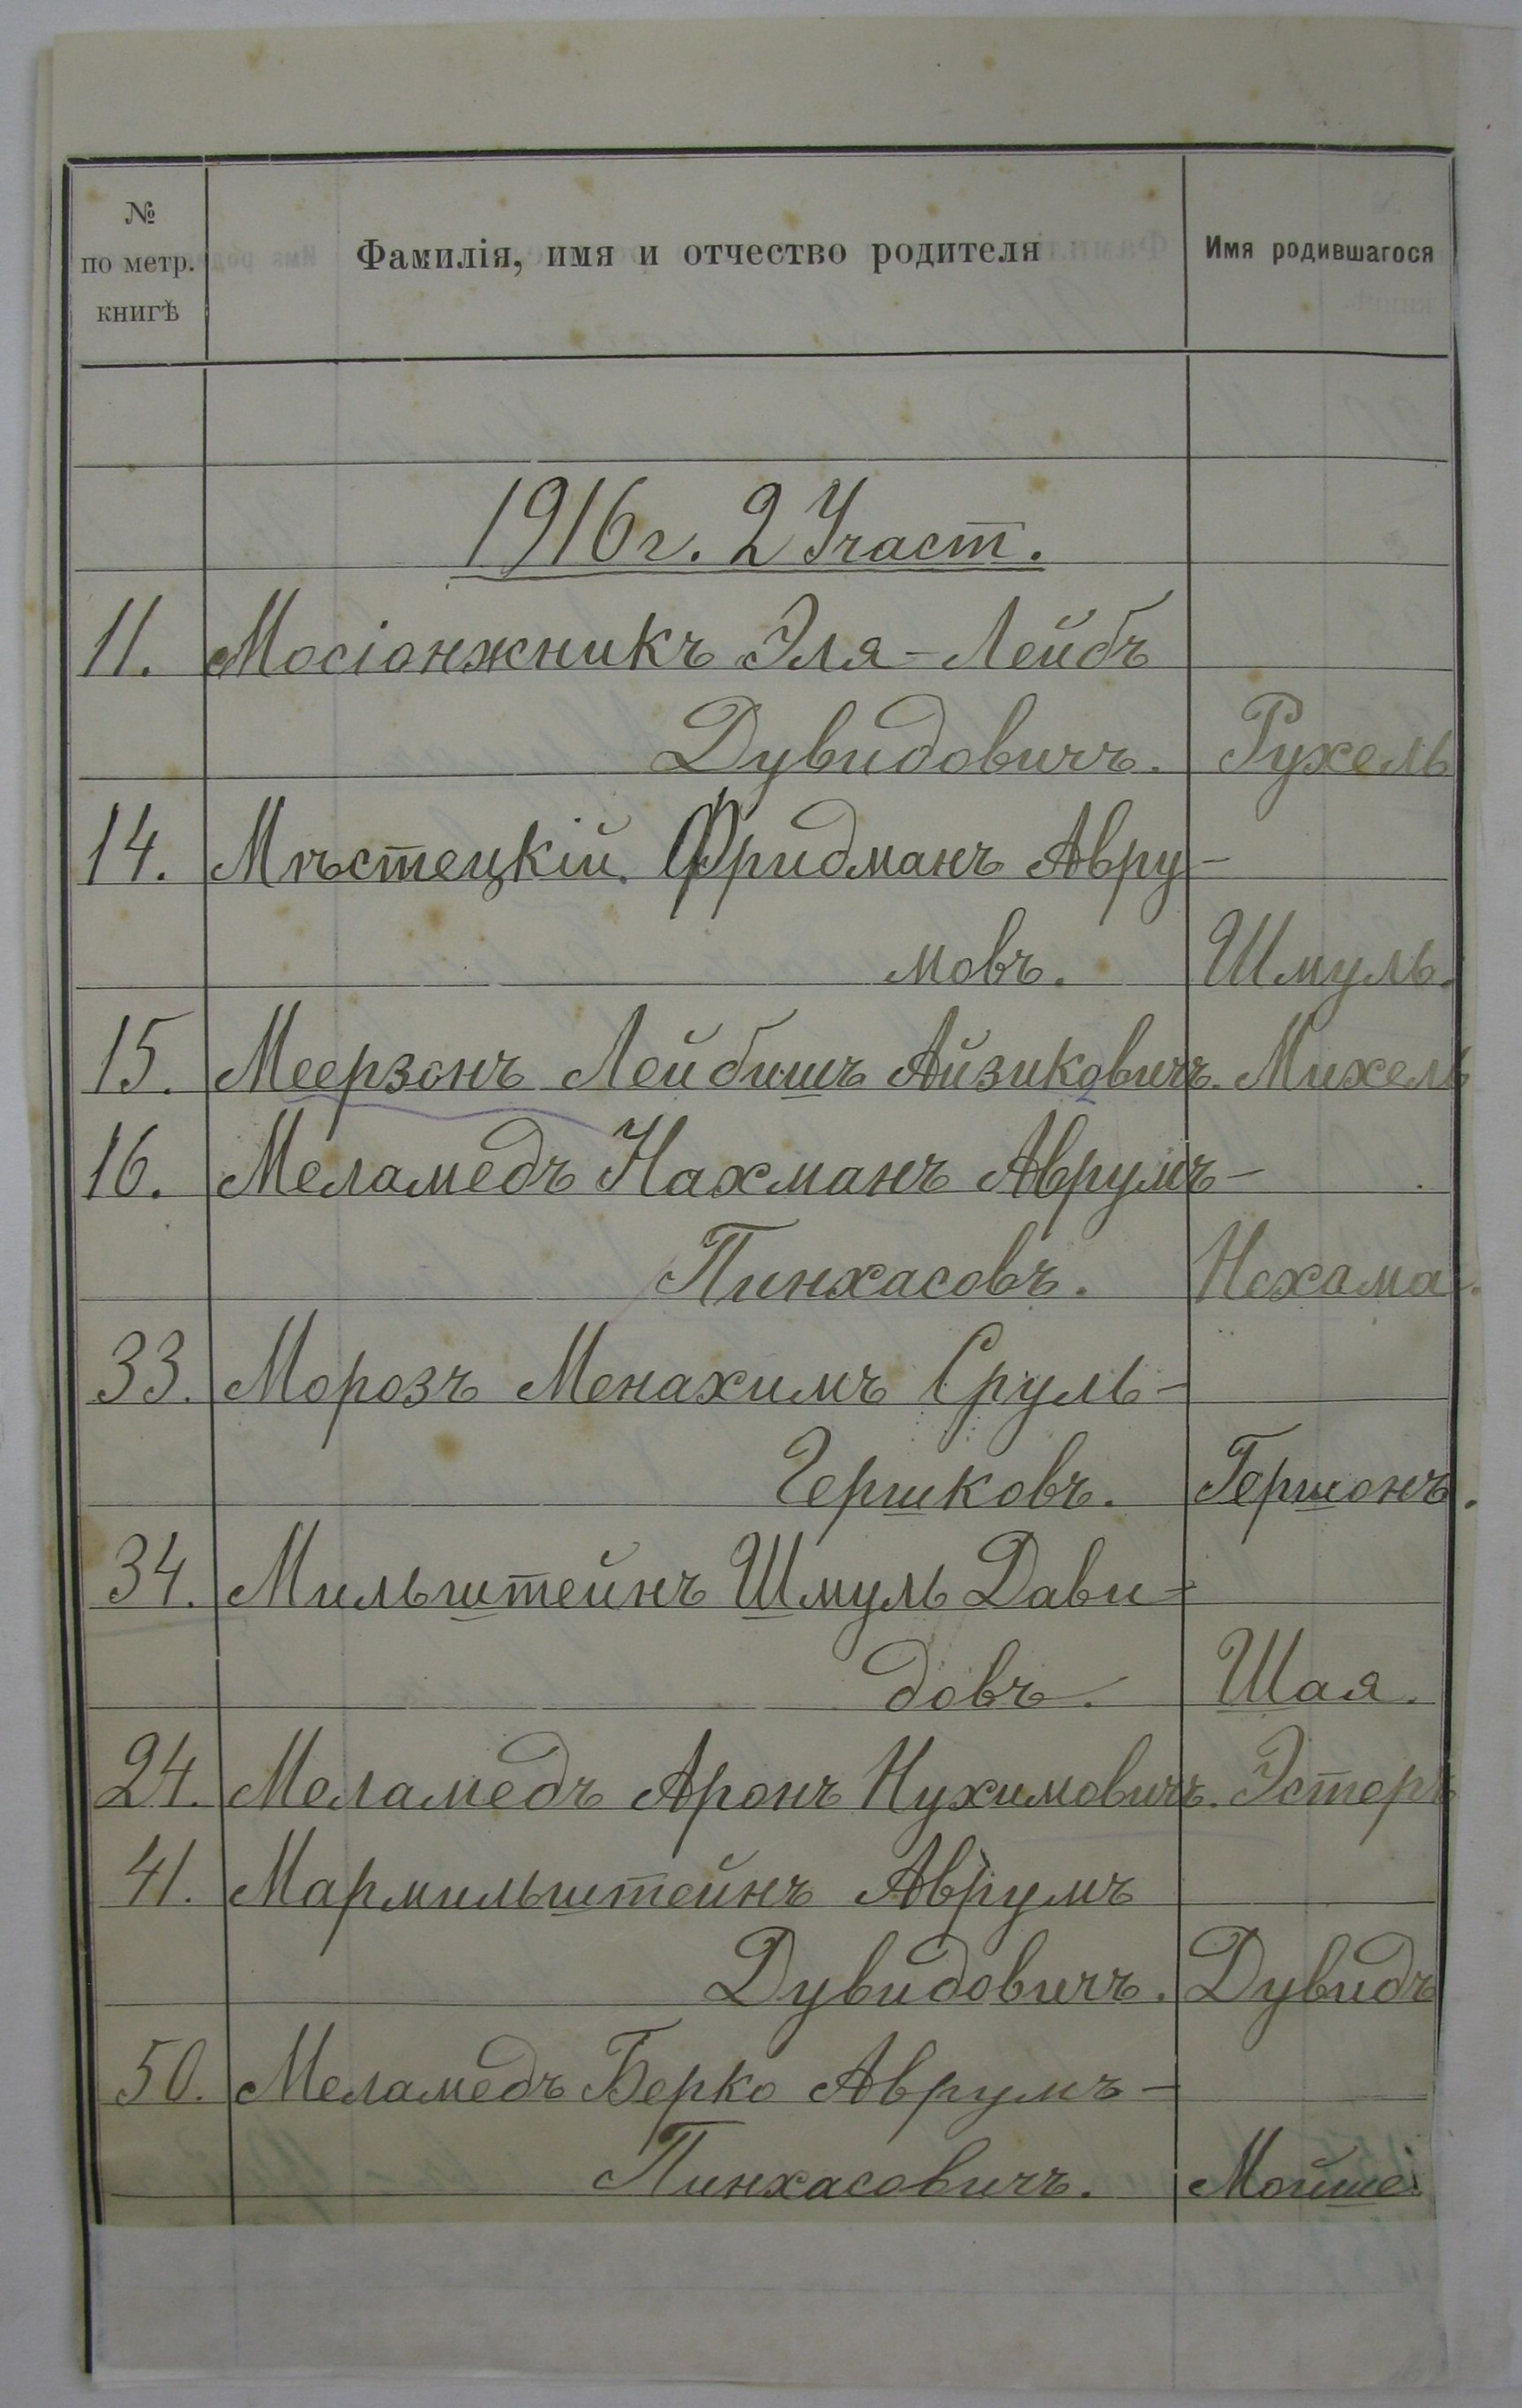 №
по метр.
книгѣ
Фамилія, имя и отчество родителя
Имя родившагося
1916 г. 2 Участ.
11. Мосіонжникъ Эля-Лейбъ
Дувидовичъ. Рухель
14. Мѣстецкій Фридманъ Авру-
мовъ. Шмуль.
15. Меерзонъ Лейбишъ Айзиковичъ. Михель
16. Меламедъ Нахманъ Аврумъ-
Пинхасовъ. Нехама.
33. Морозъ Менахимъ Сруль-
Гершковъ. Гершонъ.
34. Мильштейнъ Шмуль Дави-
довъ. Шая.
24. Меламедъ Аронъ Нухимовичъ. Эстеръ
41. Мармильштейнъ Аврумъ
Дувидовичъ. Дувидъ
50. Меламедъ Берко Аврумъ-
Пинхасовичъ. Мойше.